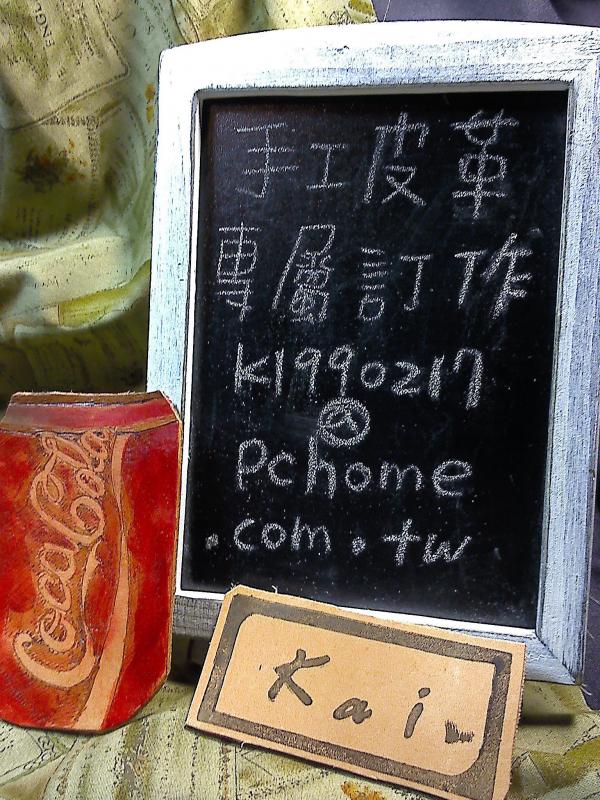 手工皮革
專屬訂作
k1990217
@
Pchome
.com.tw
Coca-Cola
Kai